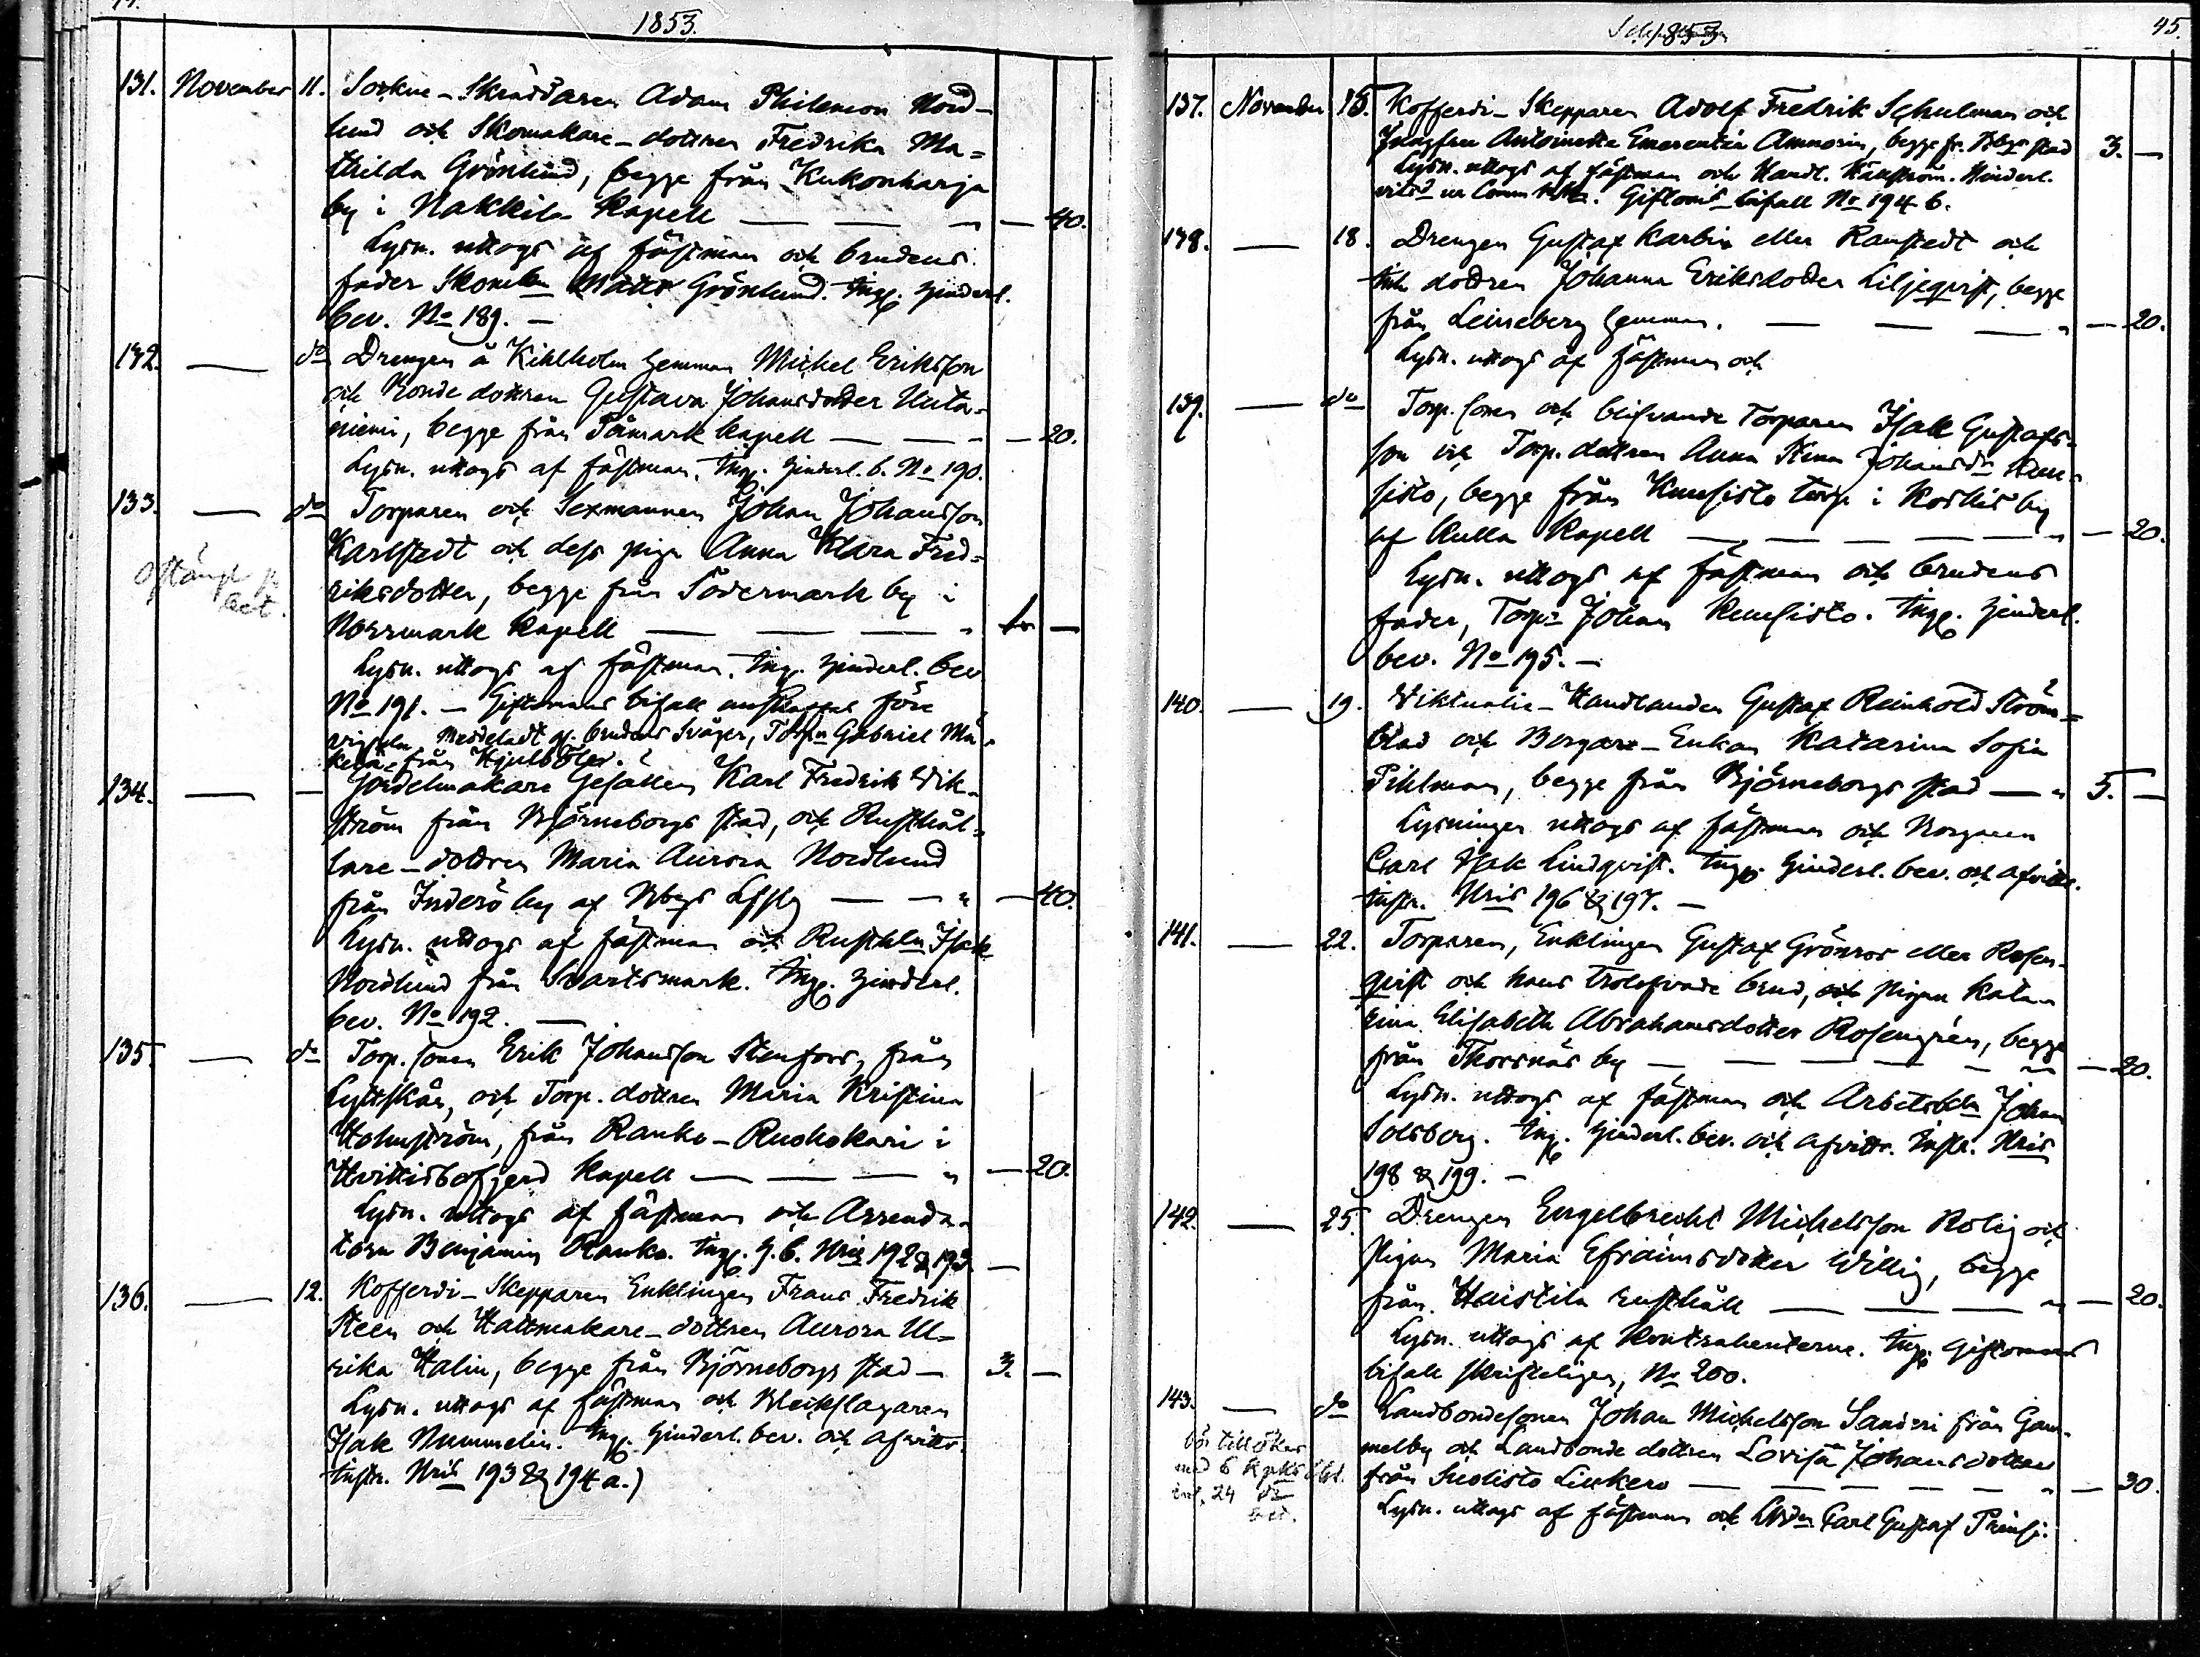 1853.
131. November 11. Sockne-Skräddaren Adam Philemon Nord-
lund och Skomakare-dottren Fredrika Ma=
thilda Grönlund, begge från Kukonharja
by i Nakkila Kapell — — " — 40.
Lysn. uttogs af fästman och brudens
fader Skomak. Grönlund. Ingen hinderl.
bev. No 189. —
132. — do Drengen å Kihlholm hemman Mickel Eriksson
och Bonde dottren Gustava Johansdotter Uuta-
niemi, begge från Påmark Kapell — — " — 20.
Lysn. uttogs af fästman. Ing. hinderl. b. No 190.
133. — do Torparen och Sexmannen Johan Johansson
Karlstedt och dess piga Anna Klara Fred=
riksdotter, begge från Södermark by i
Norrmark Kapell — — — " —
Lysn. uttogs af fästman. Ing. hinderl. bev.
No 191. — Giftomans bifall före
brudens Svåger, Torpn Gabriel Mä-
kelä från
134. — — Gördelmakare Gesällen Karl Fredrik Wik-
ström från Björneborgs stad, och Rusthål-
lare-dottren Maria Aurora Nordlund
från Inderö by af Bbgs Lffsg — — " — 40.
Lysn. uttogs af fästman och Rusthln Isak
Nordlund från Svartsmark. Ing. hinderl.
bev. No 192. —
135. — do Torp. sonen Erik Johansson Stenfors, från
Lyttskär, och Torp. dottren Maria Kristina
Holmström, från Ranko-Ruohokari i
Hvittisbofjerd Kapell — — — " — 20.
Lysn. uttogs af fästman och Arrenda-
torn Benjamin Ranko. Ing. h. b. Nris 192 & 193. —
136. — 12. Kofferdi-Skepparen Enklingen Frans Fredrik
Steen och Hattmakare-dottren Aurora Ul-
rika Malin, begge från Björneborgs stad — 3. —
Lysn. uttogs af fästman och Bleckslagaren
Isak Nummelin. Ing. hinderl. bev. och afvittr.
instr. Nris 193 & 194 a.)
1853
45.
137. November 15. Kofferdi-Skepparen Adolf Fredrik Schulman och
Jungfru Antoinette Emerentia Amnorin, begge fr. Bbgs stad 3. —
Lysn. uttogs af fästman och Handl. Hinderl.
Giftom.s bifall No 194 b.
138. — 18. Drengen Gustaf Karbin eller Ranstedt och
dottren Johanna Eriksdotter Liljeqvist, begge
från Leineberg hemman. — — — " — 20.
Lysn. uttogs af fästman och
139. — do Torp. sonen och blifvande Torparen Isak Gustafs-
son och Torp. dottren Anna Stina Johansdr Kuu-
sisto, begge från Kuusisto torp i Koskis by
af Kulla Kapell — — — — — " — 20.
Lysn. uttogs af fästman och brudens
fader, Torpn Johan Kuusisto. Ing. hinderl.
bev. No 195. —
140. — 19. Viktualie-Handlanden Gustaf Reinhold Ström=
blad och Borgare-Enkan Katarina Sofia
Pihlman, begge från Björneborgs stad — " 5. —
Lysningen uttogs af fästman och Borgaren
Carl Isak Lindqvist. Ing. hinderl. bev. och afvittr.
instr. Nris 196 & 197. —
141. — 22. Torparen, Enklingen Gustaf Grönroos eller Rosen-
qvist och hans trolofvade brud, pigan Kata-
rina Elisabeth Abrahamsdotter Rosengrén, begge
från Thorsnäs by — — — — — — 20.
Lysn. uttogs af fästman och Arbetskln Johan
Solsberg. Ing. hinderl. bev. och afvittr. instr. Nris
198 & 199. —
142. — 25. Drengen Engelbrecht Michelsson Rolig och
Pigan Maria Efraimsdotter Willig, begge
från Haistila rusthåll — — — " — 20.
Lysn. uttogs af Kontrahenterne. Ing. Giftomans
bifall skrifteligen, No 200.
143. — do Landbondesonen Johan Michelsson Santeri från Gam-
melby och Landbonde dottren Lovisa Johansdotter
från Suolisto Linkero — — — — — " — 30.
Lysn. uttogs af fästman och Carl Gustaf
bör tillökas
med 6 kopk.